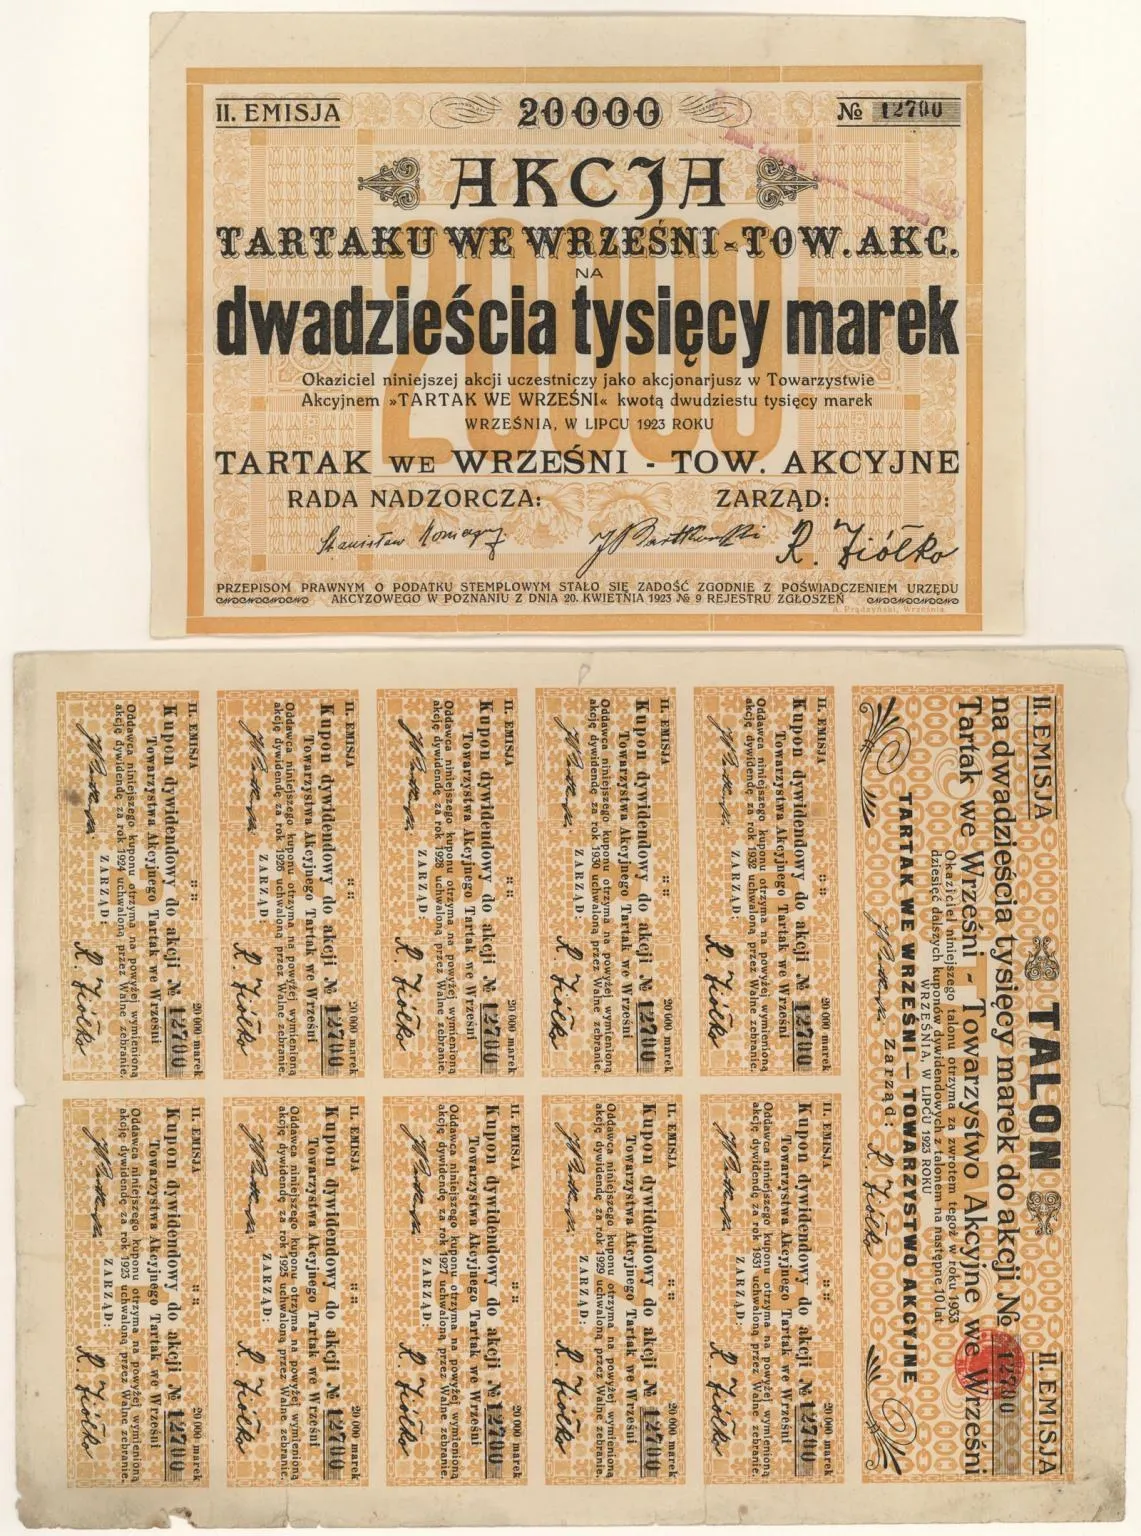 II. EMISJA 20000 № 12700
AKCJA
TARTAKU WE WRZEŚNI - TOW. AKC.
NA
dwadzieścia tysięcy marek
Okaziciel niniejszej akcji uczestniczy jako akcjonarjusz w Towarzystwie
Akcyjnem »TARTAK WE WRZEŚNI« kwotą dwudziestu tysięcy marek
WRZEŚNIA, W LIPCU 1923 ROKU
TARTAK WE WRZEŚNI - TOW. AKCYJNE
RADA NADZORCZA: ZARZĄD:
Stanisław R. Ziółko
PRZEPISOM PRAWNYM O PODATKU STEMPLOWYM STAŁO SIĘ ZADOŚĆ ZGODNIE Z POŚWIADCZENIEM URZĘDU
AKCYZOWEGO W POZNANIU Z DNIA 20. KWIETNIA 1923 № 9 REJESTRU ZGŁOSZEŃ
A. Prądzyński, Września.
II. EMISJA TALON II. EMISJA
na dwadzieścia tysięcy marek do akcji № 12700
Tartak we Wrześni - Towarzystwo Akcyjne we Wrześni
Okaziciel niniejszego talonu otrzyma za zwrotem tegoż w roku 1933
dziesięć dalszych kuponów dywidendowych z talonem na następne 10 lat
WRZEŚNIA, W LIPCU 1923 ROKU
TARTAK WE WRZEŚNI — TOWARZYSTWO AKCYJNE
Zarząd: R. Ziółko
II. EMISJA :: :: 20 000 marek
Kupon dywidendowy do akcji № 12700
Towarzystwa Akcyjnego Tartak we Wrześni
Oddawca niniejszego kuponu otrzyma na powyżej wymienioną
akcję dywidendę za rok 1932 uchwaloną przez Walne zebranie.
ZARZĄD:
R. Ziółko
II. EMISJA :: :: 20 000 marek
Kupon dywidendowy do akcji № 12700
Towarzystwa Akcyjnego Tartak we Wrześni
Oddawca niniejszego kuponu otrzyma na powyżej wymienioną
akcję dywidendę za rok 1931 uchwaloną przez Walne zebranie.
ZARZĄD:
R. Ziółko
II. EMISJA :: :: 20 000 marek
Kupon dywidendowy do akcji № 12700
Towarzystwa Akcyjnego Tartak we Wrześni
Oddawca niniejszego kuponu otrzyma na powyżej wymienioną
akcję dywidendę za rok 1930 uchwaloną przez Walne zebranie.
ZARZĄD:
R. Ziółko
II. EMISJA :: :: 20 000 marek
Kupon dywidendowy do akcji № 12700
Towarzystwa Akcyjnego Tartak we Wrześni
Oddawca niniejszego kuponu otrzyma na powyżej wymienioną
akcję dywidendę za rok 1929 uchwaloną przez Walne zebranie.
ZARZĄD:
R. Ziółko
II. EMISJA :: :: 20 000 marek
Kupon dywidendowy do akcji № 12700
Towarzystwa Akcyjnego Tartak we Wrześni
Oddawca niniejszego kuponu otrzyma na powyżej wymienioną
akcję dywidendę za rok 1928 uchwaloną przez Walne zebranie.
ZARZĄD:
R. Ziółko
II. EMISJA :: :: 20 000 marek
Kupon dywidendowy do akcji № 12700
Towarzystwa Akcyjnego Tartak we Wrześni
Oddawca niniejszego kuponu otrzyma na powyżej wymienioną
akcję dywidendę za rok 1927 uchwaloną przez Walne zebranie.
ZARZĄD:
R. Ziółko
II. EMISJA :: :: 20 000 marek
Kupon dywidendowy do akcji № 12700
Towarzystwa Akcyjnego Tartak we Wrześni
Oddawca niniejszego kuponu otrzyma na powyżej wymienioną
akcję dywidendę za rok 1926 uchwaloną przez Walne zebranie.
ZARZĄD:
R. Ziółko
II. EMISJA :: :: 20 000 marek
Kupon dywidendowy do akcji № 12700
Towarzystwa Akcyjnego Tartak we Wrześni
Oddawca niniejszego kuponu otrzyma na powyżej wymienioną
akcję dywidendę za rok 1925 uchwaloną przez Walne zebranie.
ZARZĄD:
R. Ziółko
II. EMISJA :: :: 20 000 marek
Kupon dywidendowy do akcji № 12700
Towarzystwa Akcyjnego Tartak we Wrześni
Oddawca niniejszego kuponu otrzyma na powyżej wymienioną
akcję dywidendę za rok 1924 uchwaloną przez Walne zebranie.
ZARZĄD:
R. Ziółko
II. EMISJA :: :: 20 000 marek
Kupon dywidendowy do akcji № 12700
Towarzystwa Akcyjnego Tartak we Wrześni
Oddawca niniejszego kuponu otrzyma na powyżej wymienioną
akcję dywidendę za rok 1923 uchwaloną przez Walne zebranie.
ZARZĄD:
R. Ziółko